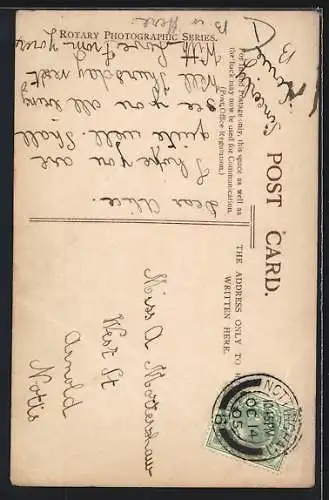 ROTARY PHOTOGRAPHIC SERIES.
POST CARD.
For Inland Postage only, this space as well as
the back may now be used for Communication.
(Post Office Regulation.)
THE ADDRESS ONLY TO
WRITTEN HERE.
Dear Alice.
I hope you are
quite well. Shall
see you all being
well Thursday next
With Love from yours
Sincerely
B
Miss A Mottershaw
West St
Arnold
Notts
NOTTINGHAM
OC 14
05